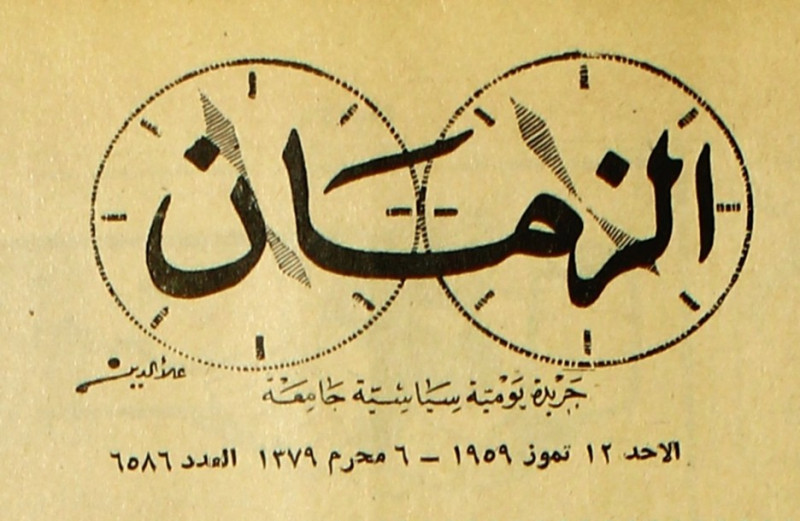 الزمان
علاءالدين
جريدة يومية سياسية جامعة
الاحد ١٢ تموز ١٩٥٩ – ٦ محرم ١٣٧٩ العدد ٦٥٨٦